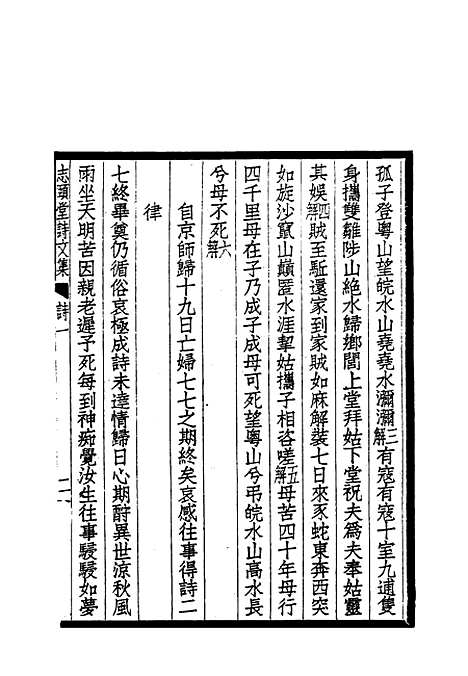 孤子登粵山望皖水山堯堯水瀰瀰三解有寇有寇十室九逋隻
身攜雙雛陟山絕水歸鄉閭上堂拜姑下堂祝夫爲夫奉姑靈
其娛四解賊至駈還家到家賊如麻解裝七日來豕蛇東奔西突
如旋沙竄山巔匿水涯挈姑攜子相咨嗟五解母苦四十年母行
四千里母在子乃成子成母可死望粵山兮弔皖水山高水長
兮母不死六解
自京師歸十九日亡婦七七之期終矣哀感往事得詩二
律
七終畢奠仍循俗哀極成詩未達情歸日心期酹異世涼秋風
雨坐天明苦因親老遲子死每到神痴覺汝生往事駸駸如夢
志頤堂詩文集 詩一 二